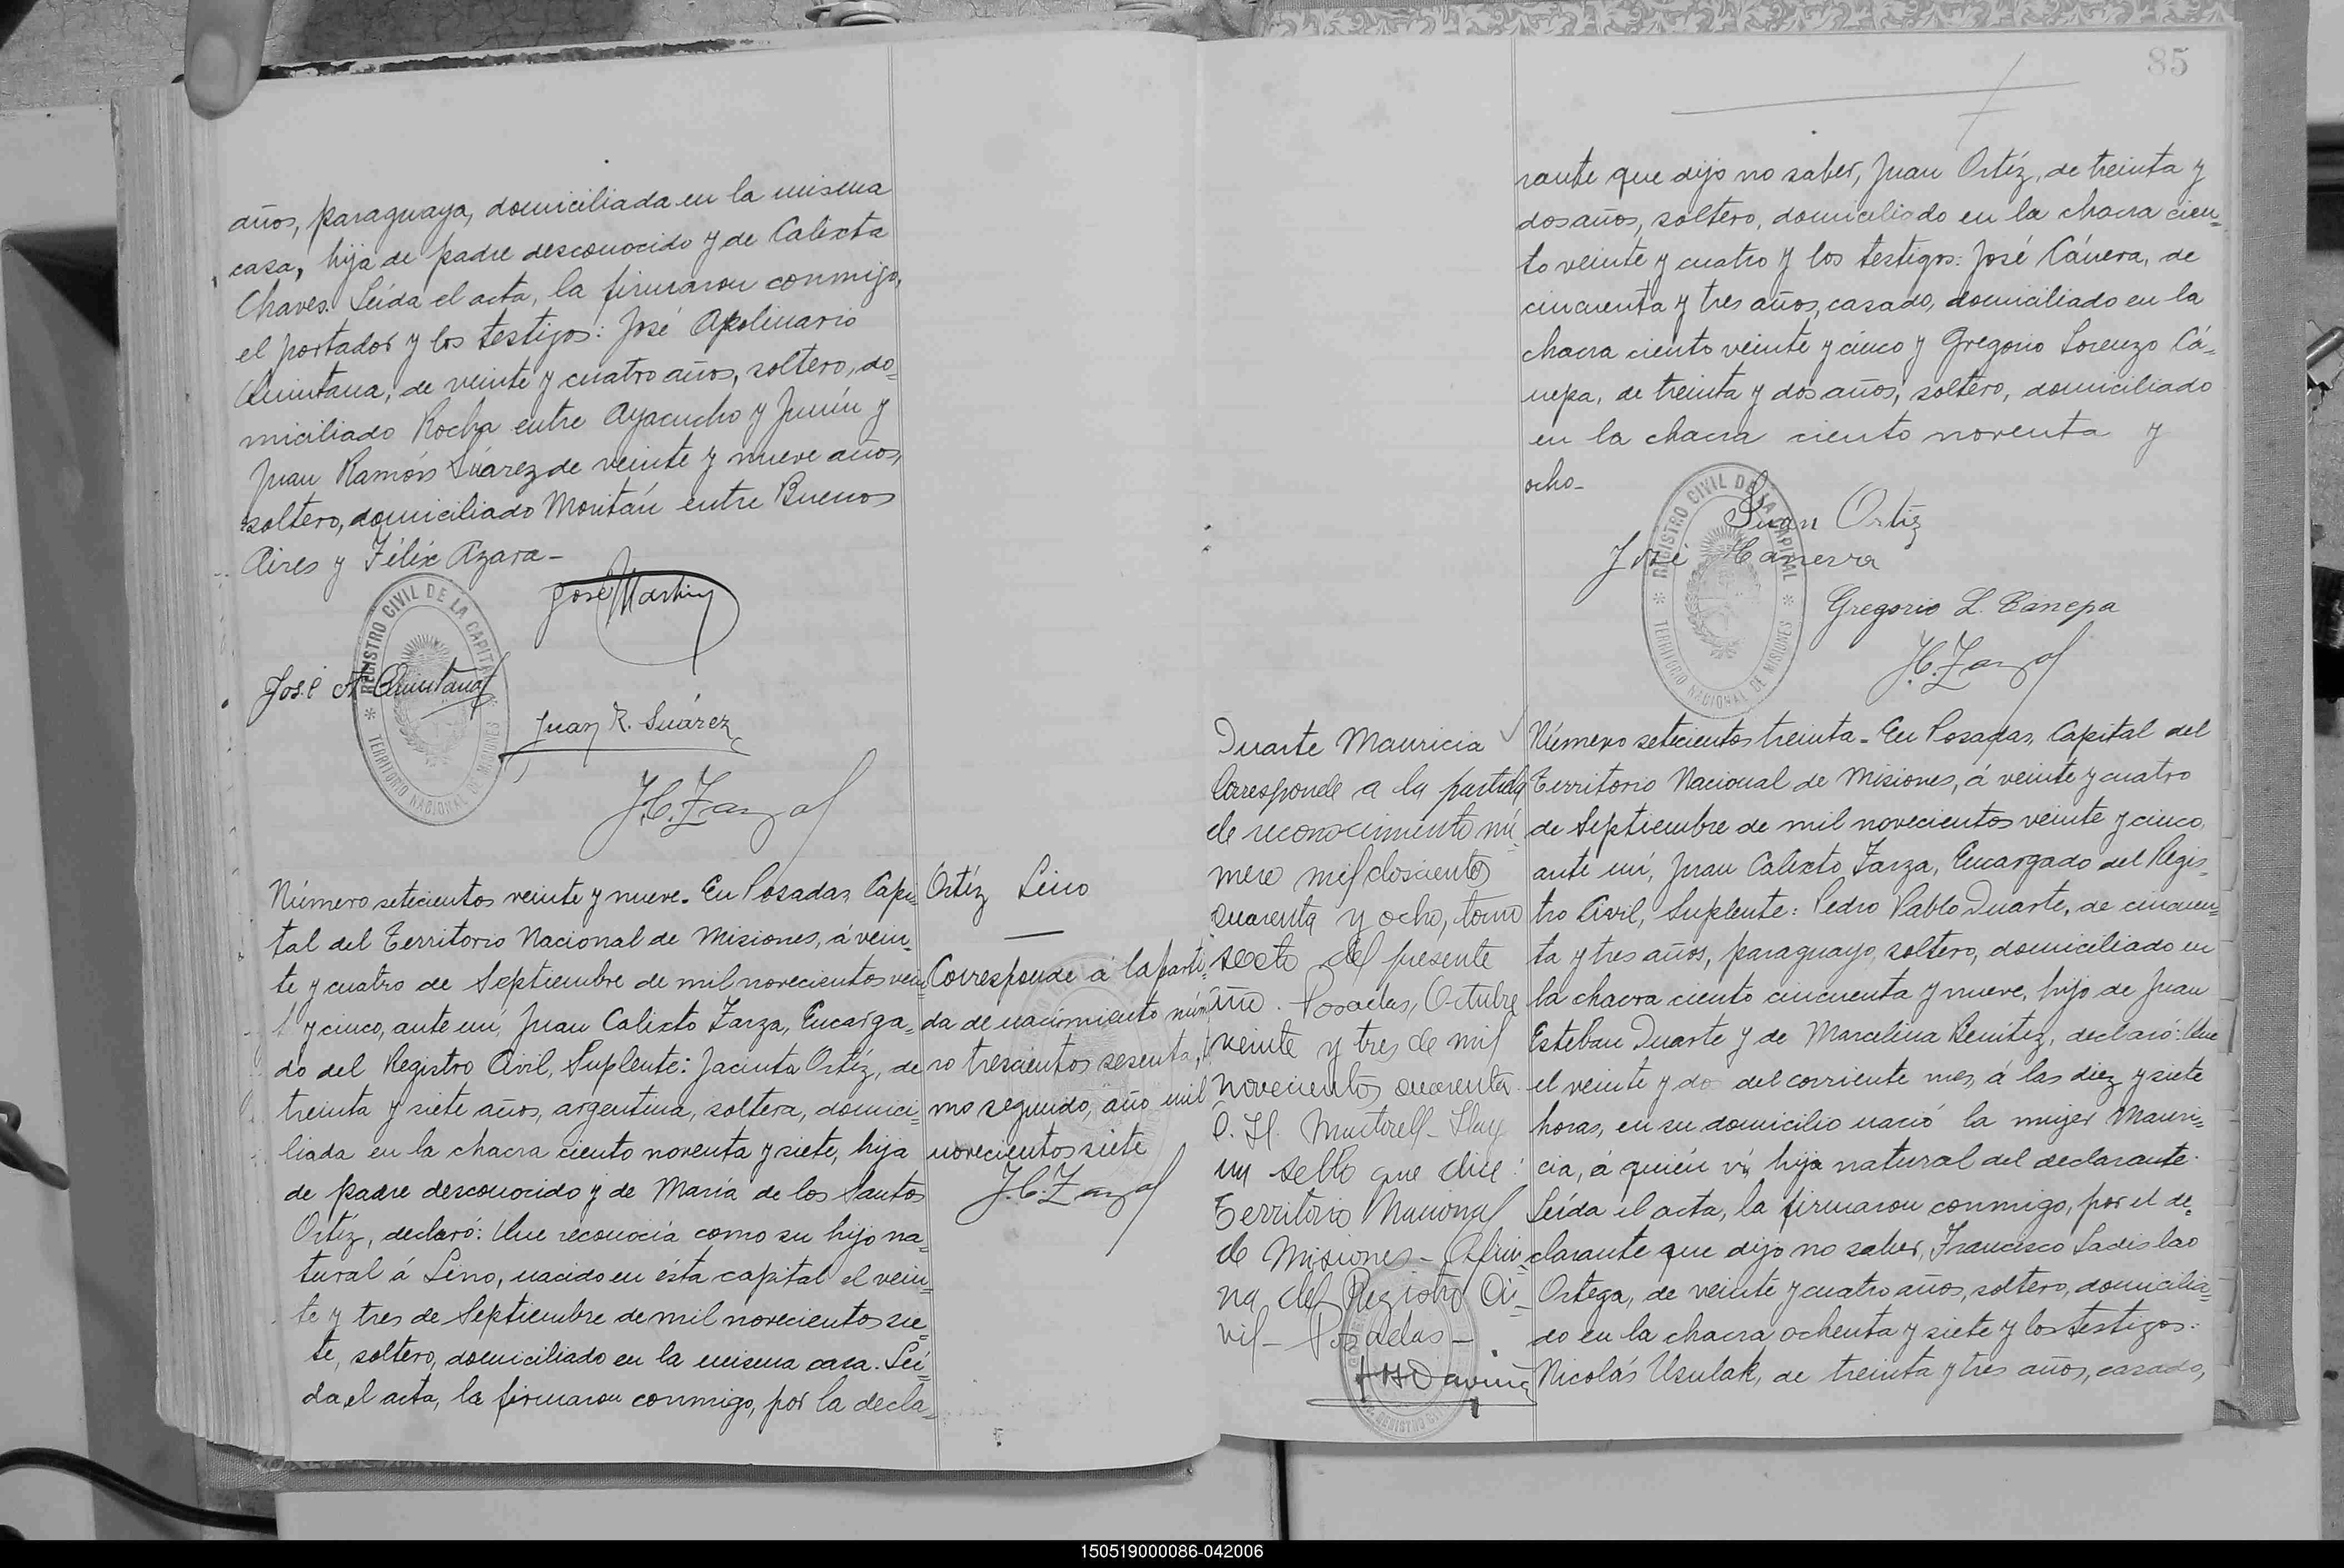 años, paraguaya, domiciliada en la misma
casa, hija de padre desconocido y de Calixta
Chaves. Leída el acta, la firmaron conmigo,
el portador y los testigos: José Apolinario
Quintana, de veinte y cuatro años, soltero, do=
miciliado Rocha entre Ayacucho y Junín y
Juan Ramón Suárez de veinte y nueve años,
soltero, domiciliado Moritán entre Buenos
Aires y Félix Azara-
José Martin
REGISTRO CIVIL DE LA CAPITAL
TERRITORIO NACIONAL DE MISIONES
José A Quintana
Juan R. Suárez
J.C. Zarza
Número setecientos veinte y nueve. En Posadas, Capi=
tal del Territorio Nacional de Misiones, á vein=
te y cuatro de Septiembre de mil novecientos vein
y cinco, ante mí, Juan Calixto Zarza, Encarga=
do del Registro Civil, Suplente: Jacinta Ortíz, de
treinta y siete años, argentina, soltera, domici=
liada en la chacra ciento noventa y siete, hija
de padre desconocido y de María de los Santos
Ortíz, declaró: Que reconocía como su hijo na=
tural á Lino, nacido en ésta capital el vein=
te y tres de Septiembre de mil novecientos sie=
te, soltero, domiciliado en la misma casa. Leí=
da el acta, la firmaron conmigo, por la decla=
Ortíz Lino
Corresponde á la parti
da de nacimiento núm
ro trescientos sesenta,
mo segundo, año mil
novecientos siete
J.C. Zarza
85
rante que dijo no saber, Juan Ortíz, de treinta y
dos años, soltero, domiciliado en la chacra cien=
to veinte y cuatro y los testigos: José Cánera, de
cincuenta y tres años, casado, domiciliado en la
chacra ciento veinte y cinco y Gregorio Lorenzo Cá=
nepa, de treinta y dos años, soltero, domiciliado
en la chacra ciento noventa y
ocho-
REGISTRO CIVIL DE LA CAPITAL
TERRITORIO NACIONAL DE MISIONES
Juan Ortiz
José Canerra
Gregorio L. Canepa
J.C. Zarza
Duarte Mauricia
Corresponde a la partida
de reconocimiento nú
mero mil doscientos
cuarenta y ocho, tomo
sexto del presente
año. Posadas, Octubre
veinte y tres de mil
novecientos cuarenta
Martorell- Hay
un sello que dice:
Territorio Nacional
de Misiones- Ofici
na del Registro Ci=
vil- Posadas-
Número setecientos treinta- En Posadas, Capital del
Territorio Nacional de Misiones, á veinte y cuatro
de Septiembre de mil novecientos veinte y cinco,
ante mí, Juan Calixto Zarza, Encargado del Regis=
tro Civil, Suplente: Pedro Pablo Duarte, de cincuen=
ta y tres años, paraguayo, soltero, domiciliado en
la chacra ciento cincuenta y nueve, hijo de Juan
Esteban Duarte y de Marcelina Benítez, declaró: Que
el veinte y do del corriente mes, á las diez y siete
horas, en su domicilio nació la mujer Mauri=
cia, á quién ví, hija natural del declarante.
Leída el acta, la firmaron conmigo, por el de=
clarante que dijo no saber, Francisco Ladislao
Ortega, de veinte y cuatro años, soltero, domicilia=
do en la chacra ochenta y siete y los testigos:
Nicolás Usulak, de treinta y tres años, casado,
150519000086-042006